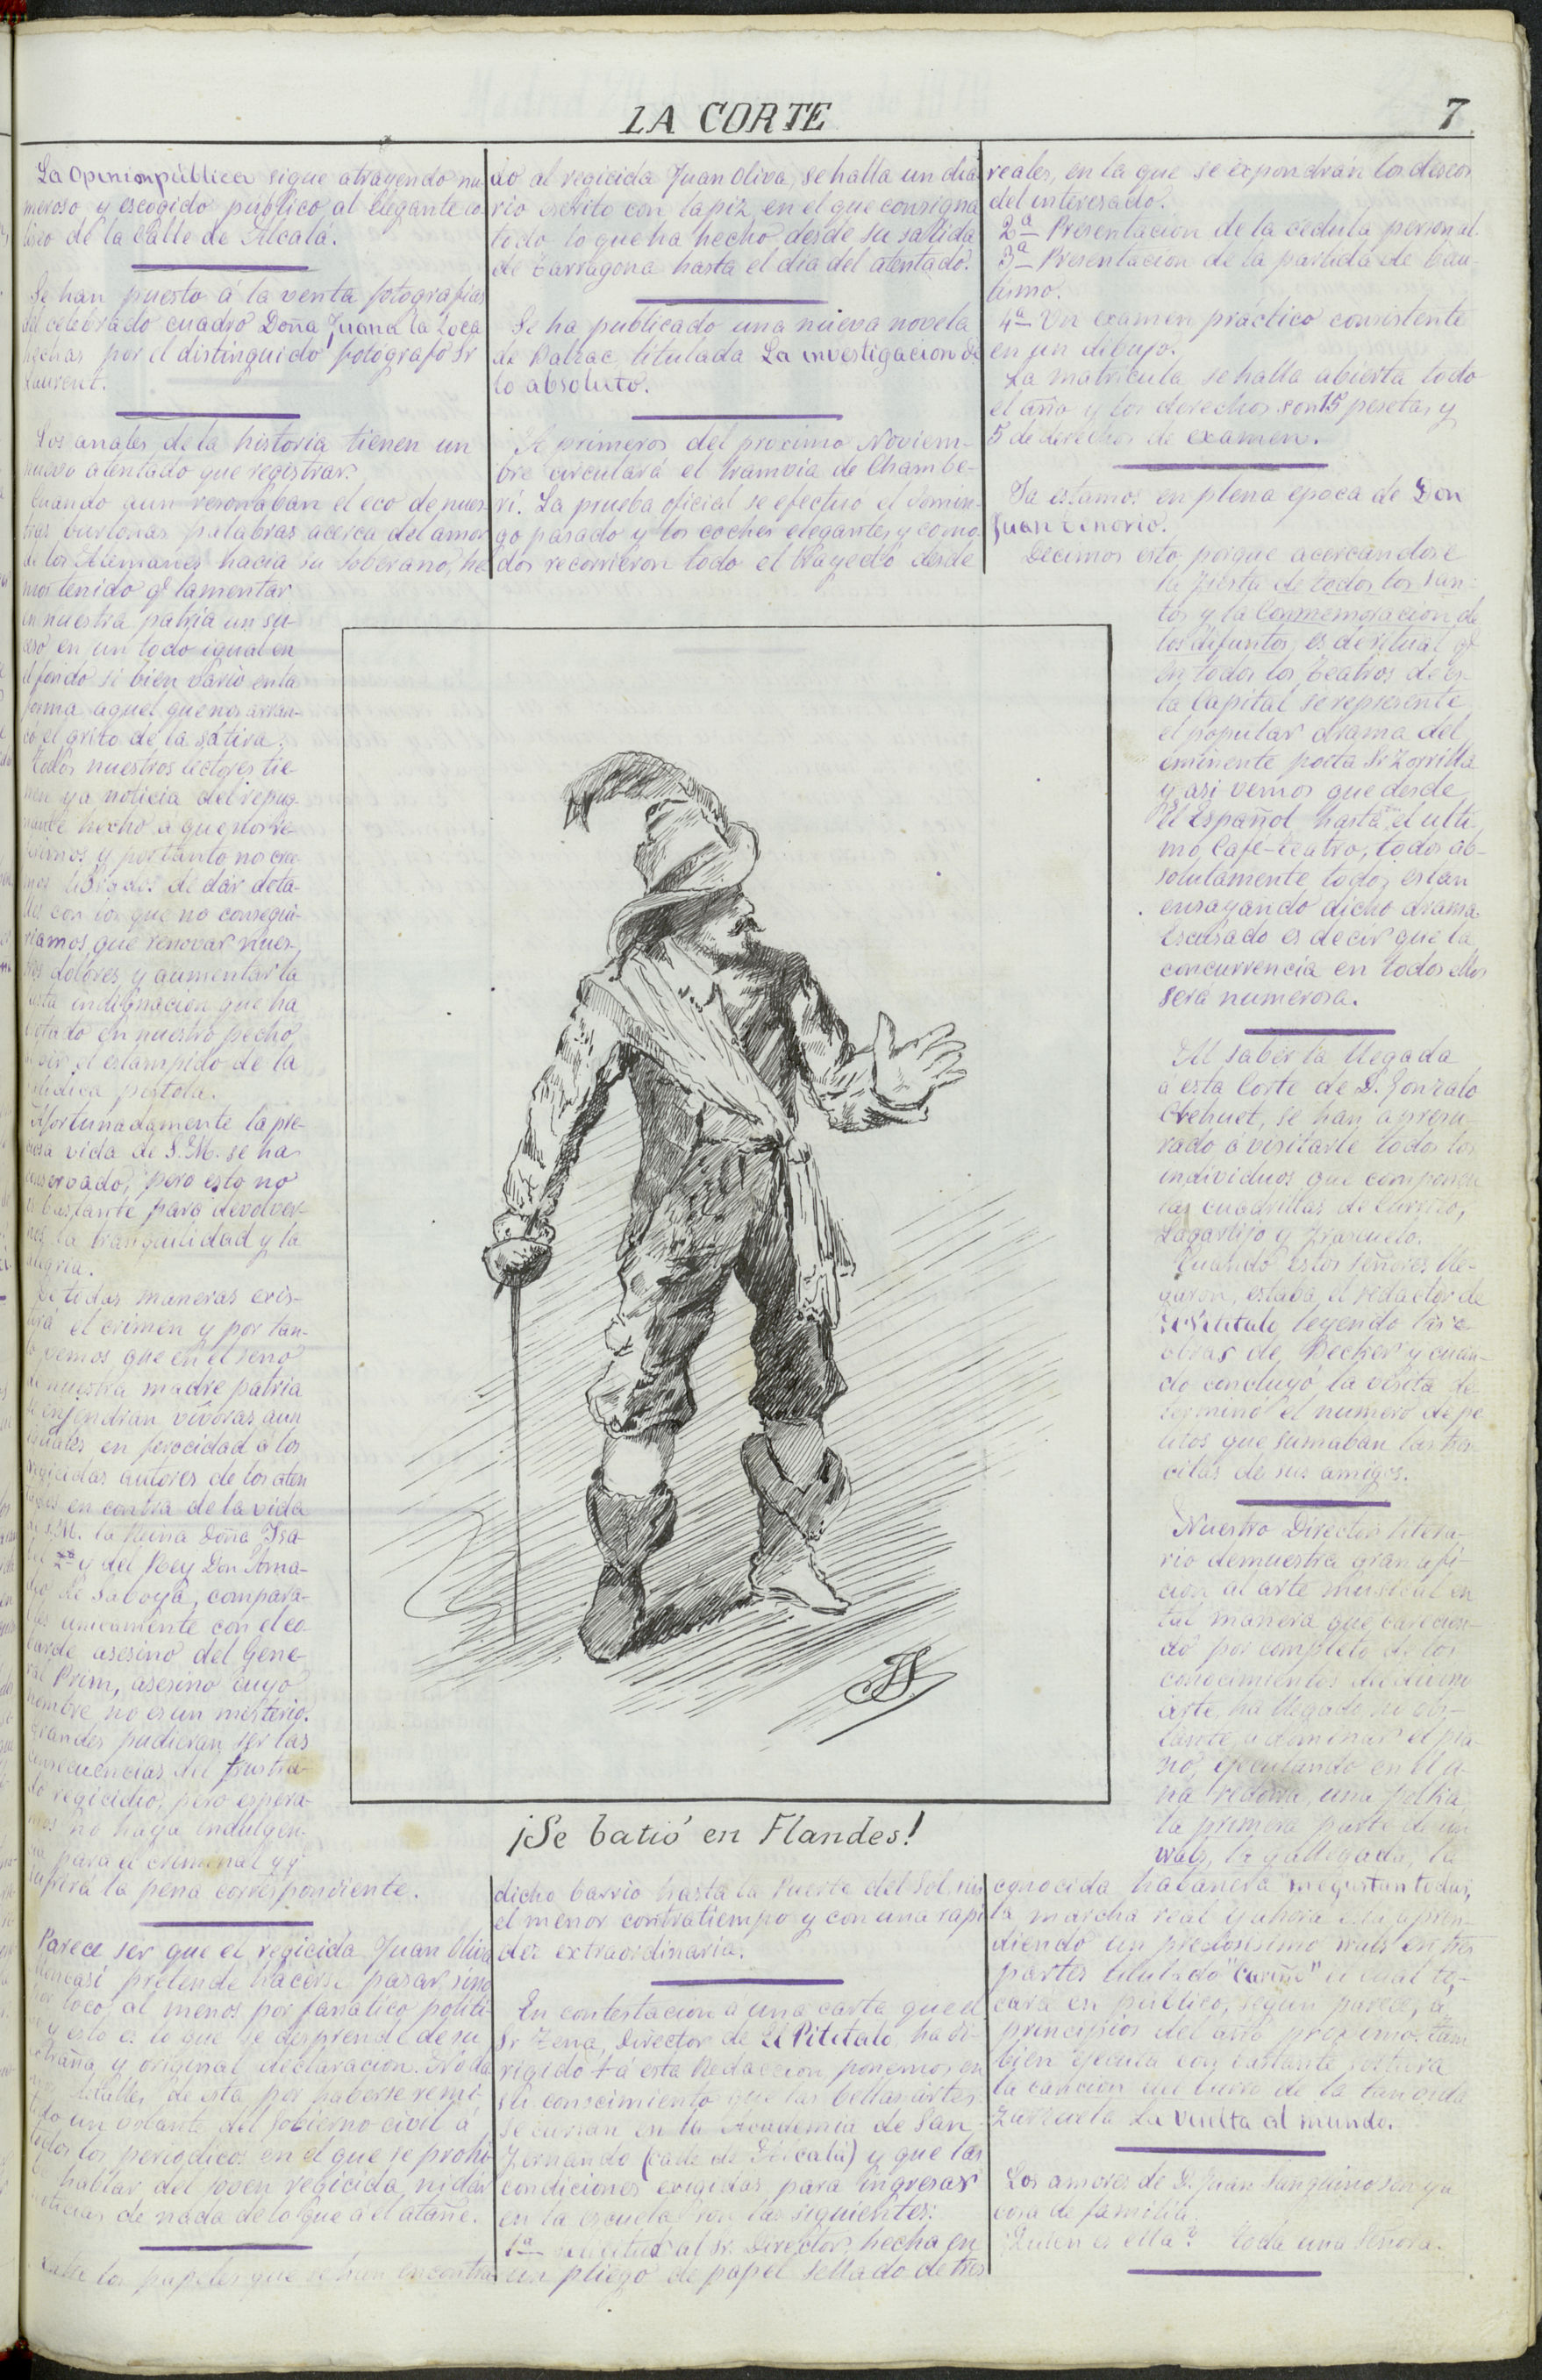 LA CORTE
7
La Opinion pública sigue atrayendo nu-
meroso y escogido público al elegante co-
liseo de la Calle de Alcalá.
Se han puesto á la venta fotografias
del celebrado cuadro Doña Juana la Loca
hechas por el distinguido fotógrafo Sr
Laurent.
Los anales de la historia tienen un
nuevo atentado que registrar.
Cuando aun resonaban el eco de nues-
tras burlonas palabras acerca del amor
de los Alemanes hacia su soberano, he-
mos tenido qe lamentar
en nuestra patria un su-
ceso en un todo igual en
el fondo si bien varió en la
forma aquel que nos arran-
có el grito de la sátira.
Todos nuestros lectores tie-
nen ya noticia del repug-
nante hecho á que nos re-
ferimos y por tanto no cree-
mos de dar deta-
lles con los que no consegui-
riamos que renovar nues-
tros dolores y aumentar la
justa indignacion que ha
brotado en nuestro pecho
al oir el estampido de la
pistola.
Afortunadamente la pre-
ciosa vida de S.M. se ha
conservado, pero esto no
es bastante para devolver-
nos la tranquilidad y la
alegria.
De todas maneras exis-
tirá el crimen y por tan-
to vemos que en el seno
de nuestra madre patria
se enjendran vívoras aun
iguales en ferocidad á los
regicidas autores de los aten-
tados en contra de la vida
de S.M. la Reina Doña Isa-
bel 2ª y del Rey Don Ama-
deo de Saboya, compara-
bles unicamente con el co-
barde asesino del Gene-
ral Prim, asesino cuyo
nombre no es un misterio.
Grandes pudieran ser las
consecuencias del frustra-
do regicidio, pero espera-
mos no haya indulgen-
cia para el criminal y qe
sufrirá la pena correspondiente.
Parece ser que el regicida Juan Oliva
Moncasi pretende hacerse pasar sino
por loco, al menos por fanatico politi-
co y esto es lo que se desprende de su
estraña y original declaracion. No da-
mos detalles de esta por haberse remi-
tido un volante del Gobierno civil á
todos los periodicos en el que se prohi-
be hablar del joven regicida ni dar
noticias de nada de lo que á el atañe.
Entre los papeles que se han encontra-
do al regicida Juan Oliva, se halla un dia-
rio escrito con lapiz en el que consigna
todo lo que ha hecho desde su salida
de Tarragona hasta el dia del atentado.
Se ha publicado una nueva novela
de Balzac titulada La investigacion de
lo absoluto.
A primeros del proximo Noviem-
bre circulará el tramvia de Chambe-
ri. La prueba oficial se efectuó el domin-
go pasado y los coches elegantes y como-
dos recorrieron todo el trayecto desde
¡Se batió en Flandes!
dicho barrio hasta la Puerta del Sol, sin
el menor contratiempo y con una rapi-
dez extraordinaria.
En contestacion á una carta que el
Sr Zena, Director de El Pitetalo ha di-
rigido á esta Redaccion ponemos en
su conocimiento que las bellas artes
se cursan en la Academia de San
Fernando (calle de Alcalá) y que las
condiciones exigidas para ingresar
en la escuela son las siguientes:
1ª Solicitud al Sr. Director, hecha en
un pliego de papel sellado de tres
reales, en la que se expondrán los deseos
del interesado.
2ª Presentacion de la cédula personal.
3ª Presentacion de la partida de bau-
tismo.
4ª Un examen práctico consistente
en un dibujo.
La matricula se halla abierta todo
el año y los derechos son 15 pesetas y
5 de derechos de examen.
Ya estamos en plena época de Don
Juan Tenorio.
Decimos esto porque acercandose
la fiesta de todos los San-
tos y la Conmemoracion de
los difuntos, es de ritual qe
en todos los teatros de es-
ta Capital se represente
el popular drama del
eminente poeta Sr Zorrilla
y asi vemos que desde
El Español hasta el ulti-
mo Café-teatro, todos ab-
solutamente todos estan
ensayando dicho drama.
Escusado es decir que la
concurrencia en todos ellos
será numerosa.
Al saber la llegada
a esta Corte de D. Gonzalo
se han apresu-
rado á visitarle todos los
individuos que componen
las cuadrillas de Currito,
Lagartijo y Frascuelo.
Cuando estos señores lle-
garon, estaba el redactor de
El Pitetalo leyendo las
obras de Becker y cuan-
do concluyó la visita de-
terminó el numero de pe-
litos que sumaban las tren-
citas de sus amigos.
Nuestro Director litera-
rio demuestra gran afi-
cion al arte musical en
tal manera que carecien-
do por completo de los
conocimientos del divino
arte, ha llegado no obs-
tante, a dominar el pia-
no, ejecutando en él
una redowa, una polka,
la primera parte de un
wals, la gallegada, la
conocida habanera me gustan todas,
la marcha real y ahora está apren-
diendo un preciosisimo wals en tres
partes titulado "Cariño" el cual to-
cará en público, segun parece, á
principios del año proximo. Tam-
bien ejecuta con bastante soltura
la cancion del burro de la tan oida
Zarzuela La vuelta al mundo.
Los amores de D. Juan Sanguino son ya
cosa de familia.
¿Quién es ella? Toda una Señora.